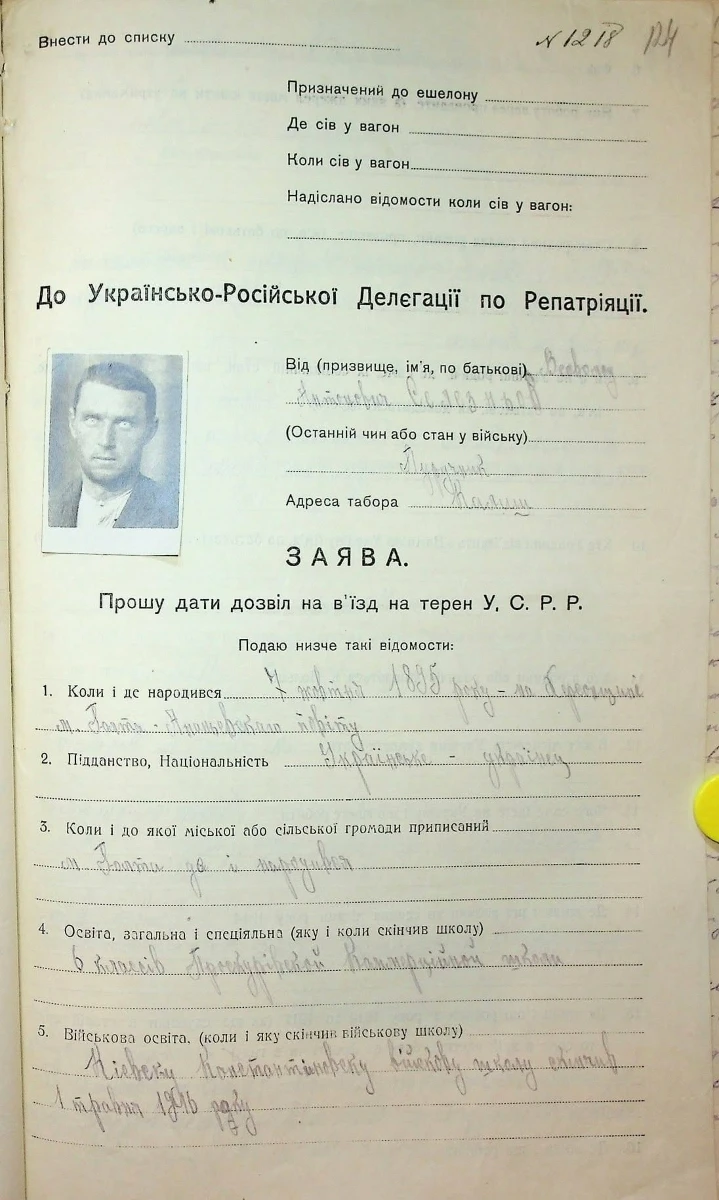 Внести до списку
N 1218
Призначений до ешелону
Де сів у вагон
Коли сів у вагон
Надіслано відомости коли сів у вагон:
До Українсько-Російської Делєгації по Репатріяції.
Від (призвище, ім'я, по батькові) Всеволод
Антонович Селезньов
(Останній чин або стан у війську)
Поручник
Адреса табора Каліш
ЗАЯВА.
Прошу дати дозвіл на в'їзд на терен У, С. Р. Р.
Подаю низче такі відомости:
1. Коли і де народився 7 жовтня 1895 року - на Херсонщині
м. Голта Ананьевского повіту
2. Підданство, Національність Українське - українец
3. Коли і до якої міської або сільської громади приписаний
м Голта де і народився
4. Освіта, загальна і спеціяльна (яку і коли скінчив школу)
6 классів Проскурівской Коммерційной школи
5. Військова освіта, (коли і яку скінчив військову школу)
Кіевску Константіновску військову школу скінчив
1 травня 1916 року